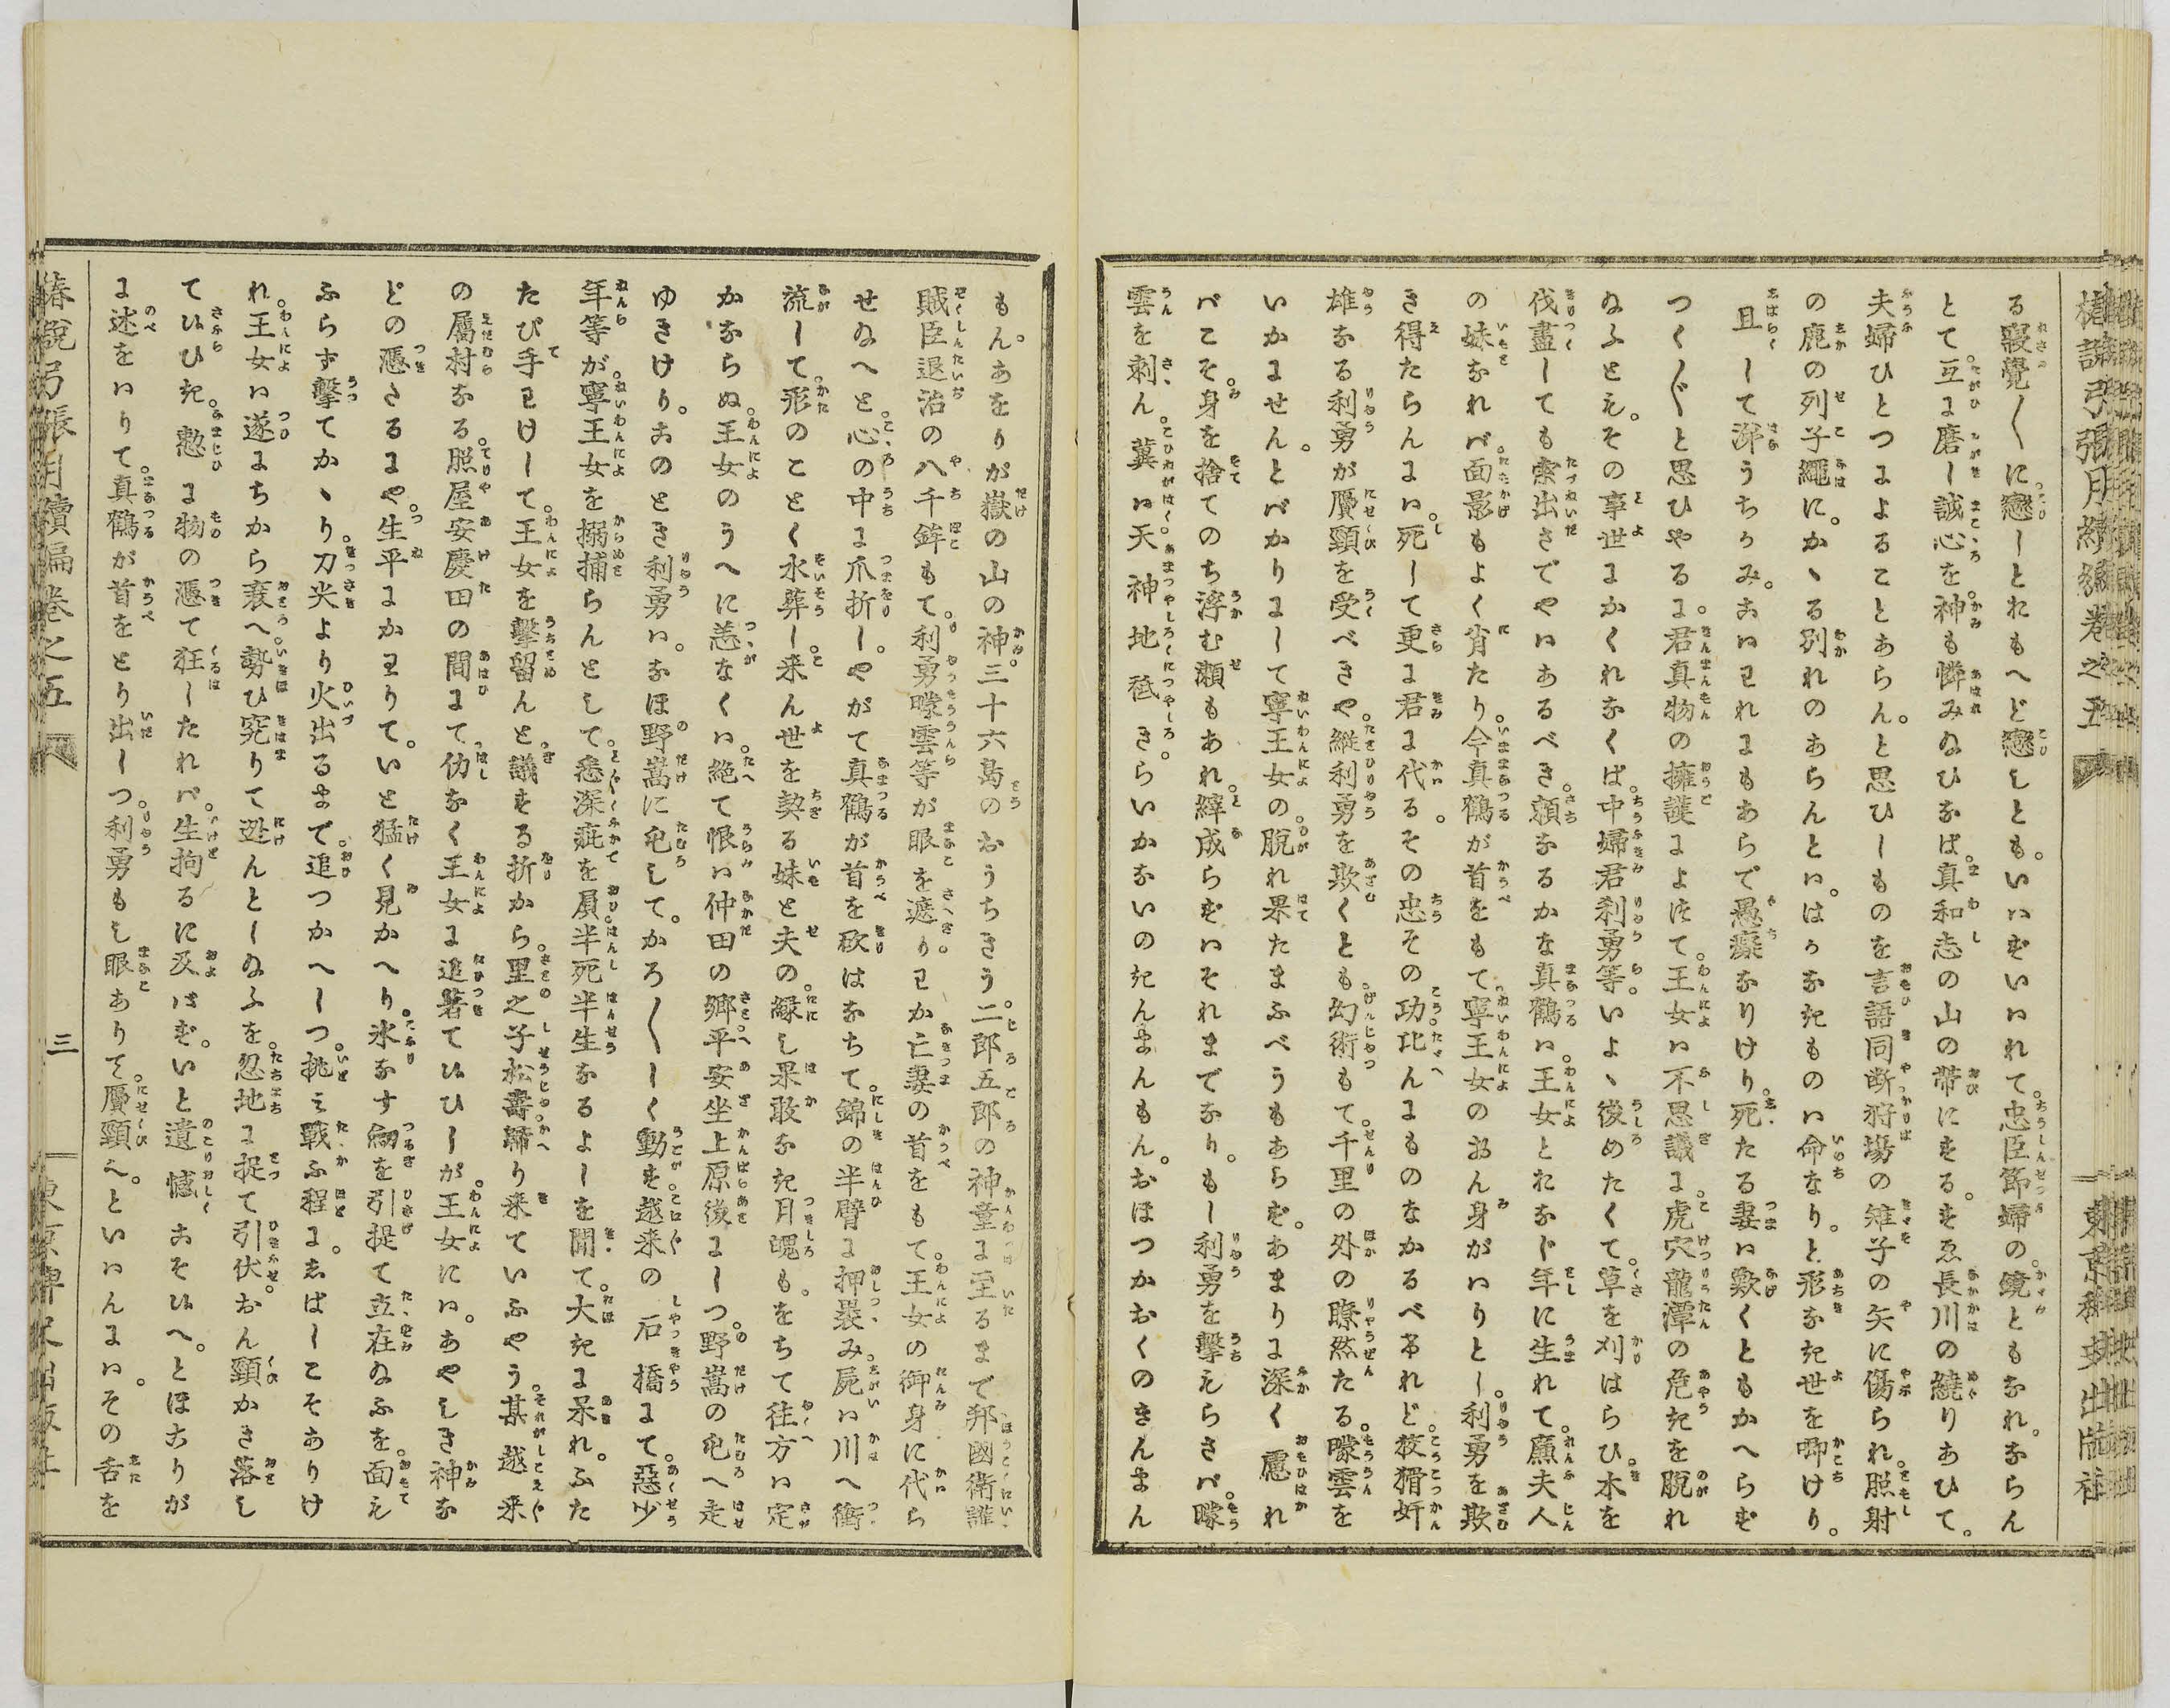 椿説弓張月續編卷之五
東京稗史出版社
る寢覺〱に戀しとおもへど戀しとも。いはでいはれて。忠臣節婦の。鏡ともなれ。ならん
とて互に磨し誠心を。神も憐みぬひなば。真和志の山の帯にする。すゑ長川の繞りあひて。
夫婦ひとつによることあらん。と思ひしものを言語同断狩塲の雉子の矢に傷られ。照射
の鹿の列子繩に。かゝる別れのあらんとは。はかなきものは命なり。と形なき世を唧けり。
且して涕うちかみ。あはれわれにもあらで愚癡なりけり。死たる妻は歎くともかへらず
つく〲と思ひやるに。君真物の擁護によつて。王女は不思議に虎穴龍潭の危きを脱れ
ぬふとも。その事世にかくれなくば。中婦君利勇等。いよゝ後めたくて。草を刈はらひ。木を
伐盡しても索出さでやはあるべき。頼なるかな真鶴は。王女とおなじ年に生れて。廉夫人
の妹なれば。面影もよく肖たり。今真鶴が首をもて。寧王女のおん身がはりとし。利勇を欺
き得たらんには。死して更に君に代る。その忠その功比んにものなかるべけれど。狡猾奸
雄なる利勇が贋頸を受べきや。縦利勇を欺くとも。幻術もて。千里の外の瞭然たる。曚雲を
いかにせん。とばかりにして寧王女の。脱れ果たまふべうもあらず。あまりに深く慮れ
ばこそ。身を捨てのち浮む瀬もあれ。縡成らずはそれまでなり。もし利勇を撃もらさば。曚
雲を刺ん。冀は天神地祇。きらいかないのきんまんもん。おほつかおくのきんまん
もん。あをりが嶽の山の神。三十六島のおうちきう。二郎五郎の神童に至るまで。邦國衛護
賊臣退治の八千鉾もて。利勇曚雲等が眼を遮り。わが亡妻の首をもて。王女の御身に代ら
せぬへと。心の中に爪折し。やがて真鶴が首を砍はなちて。錦の半臂に押裹み。屍は川へ衝
流して。形のことく水葬し。来ん世を契る妹と夫の。緑も果敢なき月魄も。をちて往方は定
かならぬ。王女のうへに恙なくは。絶て恨は仲田の郷。平安坐上原後にしつ。野嵩の屯へ走
ゆきけり。このとき利勇は。なほ野嵩に屯して。かろ〲しく動ず。越来の石橋にて。惡少
年等が。寧王女を搦捕らんとして。悉深疵を屓。半死半生なるよしを聞て。大きに呆れ。ふた
たび手わけして。王女を撃留んと。議する折から。里之子松壽歸り来ていふやう。某越来
の属村なる。照屋安慶田の間にて。仂なく王女に追著てひしが。王女には。あやしき神な
どの憑さるにや。生平にかはりて。いと猛く見かへり。氷なす劔を引提て立在ぬふを。面も
ふらず撃てかゝり。刀尖より火出るまで。追つかへしつ。挑み戰ふ程に。しばしこそありけ
れ。王女は遂にちから衰へ。勢ひ究りて迯んとしぬふを。忽地に捉て引伏。おん頸かき落し
てひき。憖に物の憑て狂したれば。生拘るに及ばず。いと遺憾こそひへ。とほこりが
に述をはりて。真鶴が首をとり出しつ。利勇もし眼ありて。贋頸へ。といはんには。その舌を
椿説弓張月續編卷之五
三
東京稗史出版社